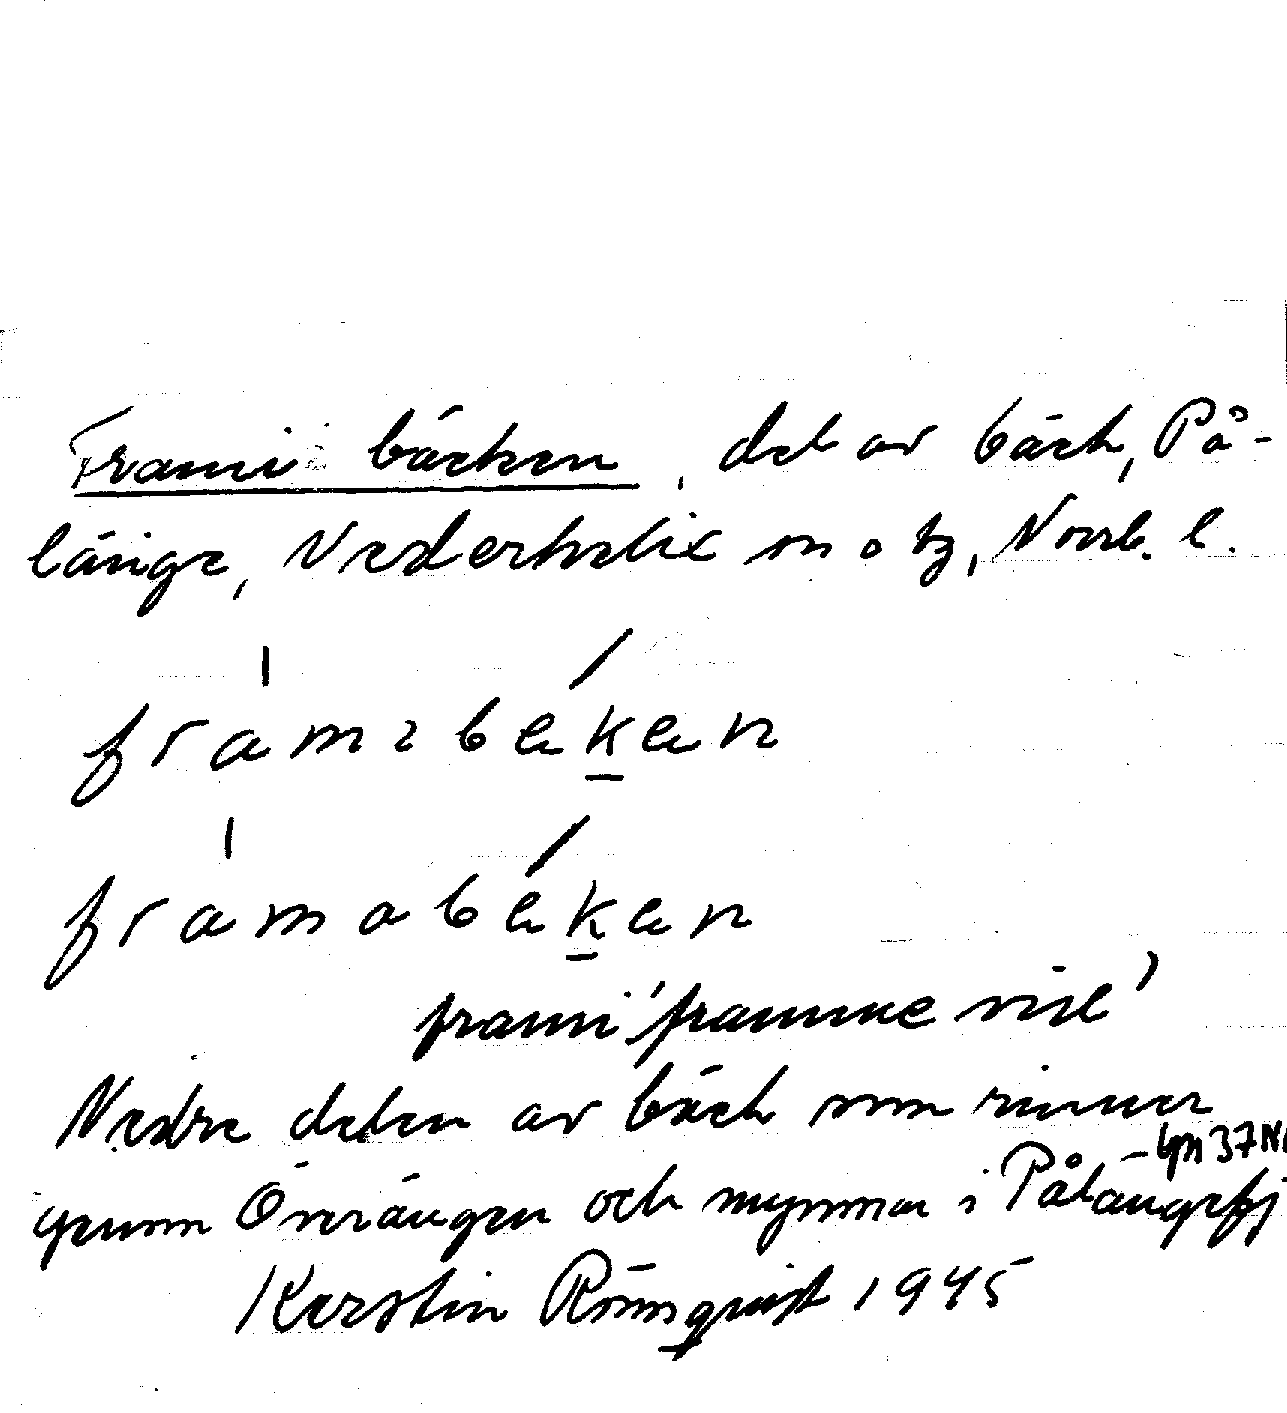 Frami bäcken, del av bäck, På-
länge, Nederkalix sn o tg, Norrb. l.
framibeken
framabeken
frami 'framme vid'
Nedre delen av bäck som rinner
genom Överängen och mynnar i Pålängefj
Kerstin Rönnqvist 1945